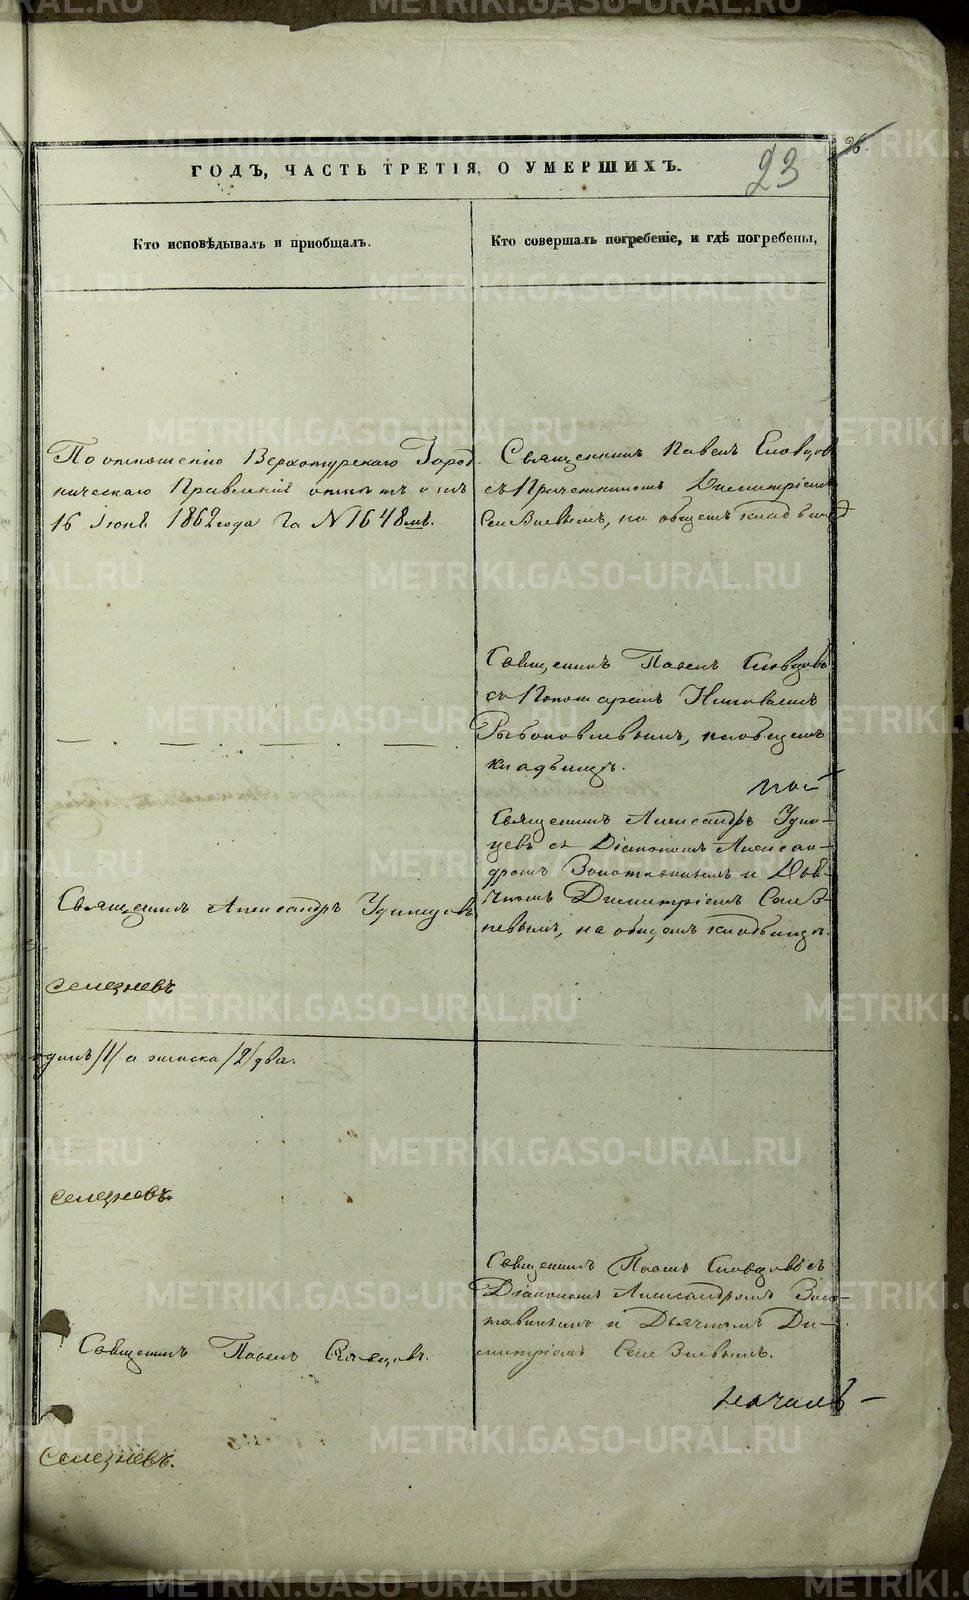 26.
ГОДЪ, ЧАСТЬ ТРЕТІЯ, О УМЕРШИХЪ.
23
Кто исповѣдывалъ и приобщалъ.
Кто совершалъ погребеніе, и гдѣ погребены,
По отношенію Верхотурскаго Город
ническаго Правленія отъ
16 Іюня 1862 года за N 1648мъ.
Священникъ Павелъ Словцов
съ Причетникомъ Димитріемъ
Селезневымъ, на общемъ кладбищѣ
Священникъ Павелъ Словцовъ
съ Пономаремъ Николаемъ
на общемъ
кладбищѣ.
Священникъ Александръ Удин-
цевъ съ Діакономъ Алексан-
дромъ и Дья-
Димитріемъ Селез-
невымъ, на общемъ кладбищѣ.
Священникъ Александръ Удинцовъ
Селезневъ
одинъ /1/ а женска /2/ два.
Селезневъ.
Священникъ Павелъ Словцовъ съ
Діакономъ Александромъ Золо-
тавинымъ и Дьячкомъ Ди-
митріемъ Селезневымъ.
Священникъ Павелъ Словцовъ.
Селезневъ.
METRIKI.GASO-URAL.RU